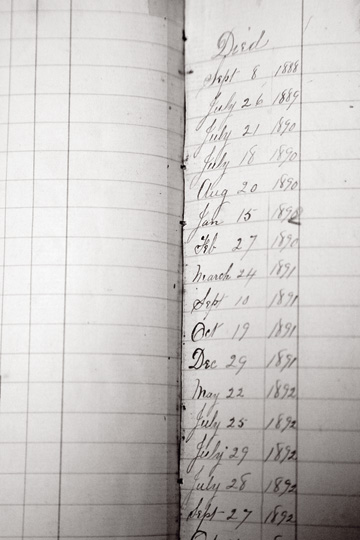 Died
Sept 8 1888
July 26 1889
July 21 1890
July 18 1890
Aug 20 1890
Jan 15
Feb 27 1890
March 24 1891
Sept 10 1891
Oct 19 1891
Dec 29 1891
May 22 1892
July 25 1892
July 29 1892
July 28 1892
Sept 27 1892